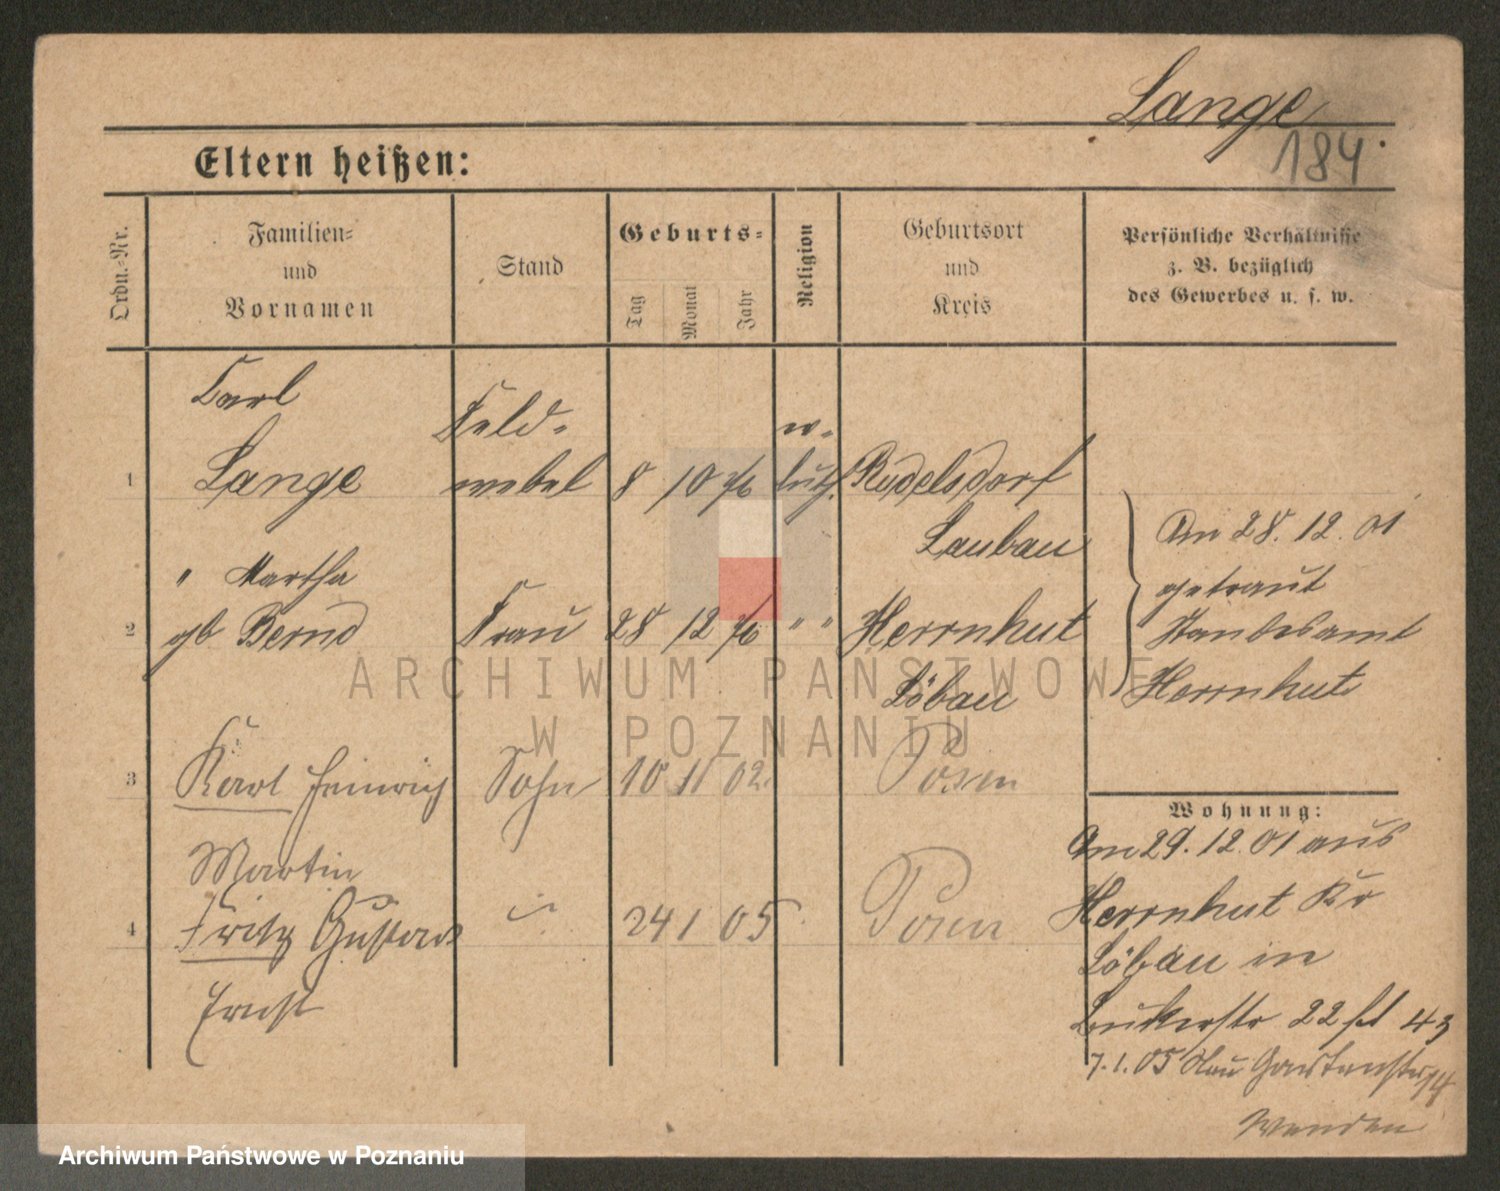 Lange
184.
Eltern heißen:
Ordn.-Nr.
Familien-
und
Vornamen
Stand
Geburts-
Tag
Monat
Jahr
Religion
Geburtsort
und
Kreis
Persönliche Verhältnisse
z. B. bezüglich
des Gewerbes u. s. w.
Carl
Feld- ev.-
1 Lange webel 8 10 76 luth. Rudelsdorf
Lauban
" Martha
2 gb Bernd Frau 28 12 76 " " Herrnhut
Löbau
Am 28. 12. 01
getraut
Standesamt
Herrnhut
3 Karl Heinrich Sohn 10 11 02 Posen
Martin
4 Fritz Gustav " 24 1 05 Posen
Ernst
Wohnung:
Am 29. 12. 01 aus
Herrnhut Kr
Löbau in
22 43
7. 1. 05 Neu Gartenstr 14
Wenden
ARCHIWUM PAŃSTWOWE
W POZNANIU
Archiwum Państwowe w Poznaniu